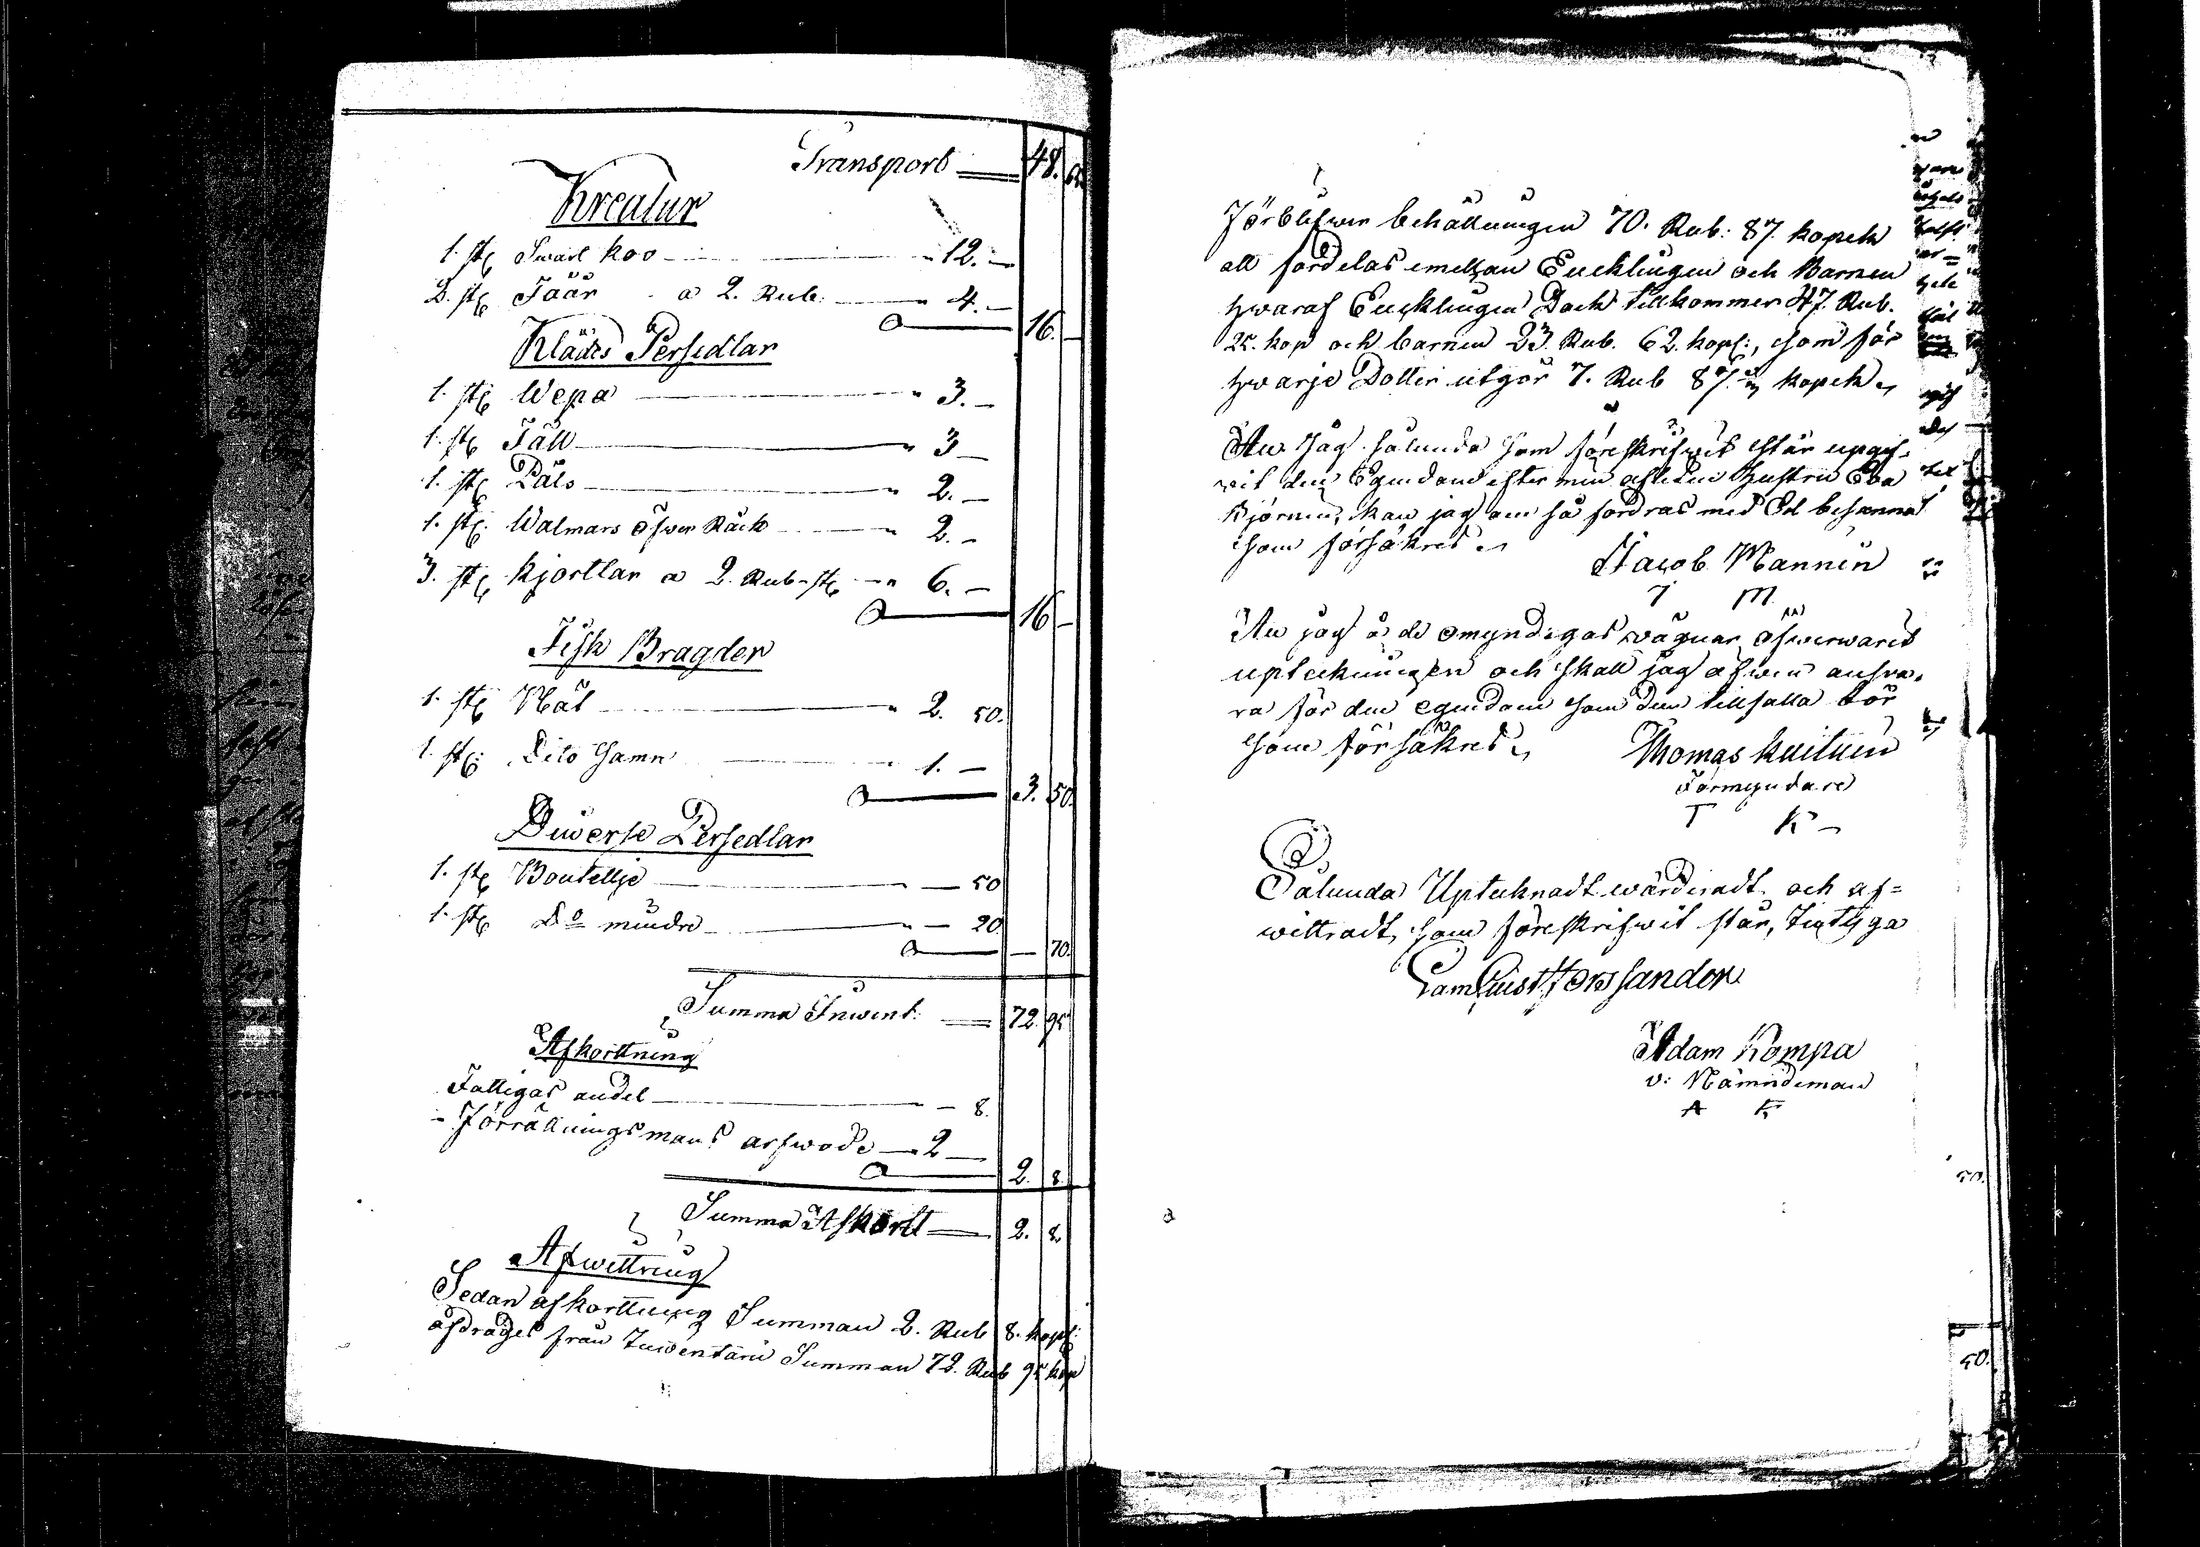 Transport 48.
Kreatur
1. st: Swart koo 12. —
2. st: Fäär a 2. Rub: 4. — 16. —
Klädes Persedlar
1. st: Wepa 3. —
1. st: Fäll 3 —
1. st: Päls 2. —
1. st: Walmars öfwer Råck 2. —
3. st: Kjortlar a 2. Rub st: 6. — 16 —
Fisk Bragder
1. st: Nät 2. 50.
1. st: Dito Samn 1. — 3. 50.
Diwerse Persedlar
1. st: Boutellje — 50
1. st: Do mindre — 20 — 70.
Summa Inwent: 72. 95
Afkorttning
Fattigas andel — 8.
Förrättningsmans arfwode 2 — 2. 8.
Summa Afkortt 2. 8.
Afwittring
Sedan afkorttning Summan 2. Rub 8. kop:
afdragés från Inwentarii Summan 72. Rub 95 kop
Förblifwer behållningen 70. Rub: 87. kopek
att fördelas emellan Encklingen och Barnen
hwaraf Encklingen Dock tillkommer 47. Rub.
25. kop och barnen 23. Rub. 62. kop:, som för
hwarje Dotter utgör 7. Rub 87. kopek
At Jag sålunda som föreskrifwit står upgif-
wit den Egendom efter min aflidne Hustru Eva
Björnin, kan jag om så fordras med Ed besanna
som försäkres.
Jacob Mannin
J M
At jag å de omyndigas wägnar öfwerwarit
upteckningen och skall jag äfwen answa-
ra för den egendom som dem tillfalla bör
som försäkres
Thomas Kuituin
Förmyndare
T K —
Sålunda Uptecknadt wärderadt och af=
wittradt, som föreskrifwit står, betyga
Sam Gust Forssander
Adam Kompa
v: Nämndeman
A K
50.
50.